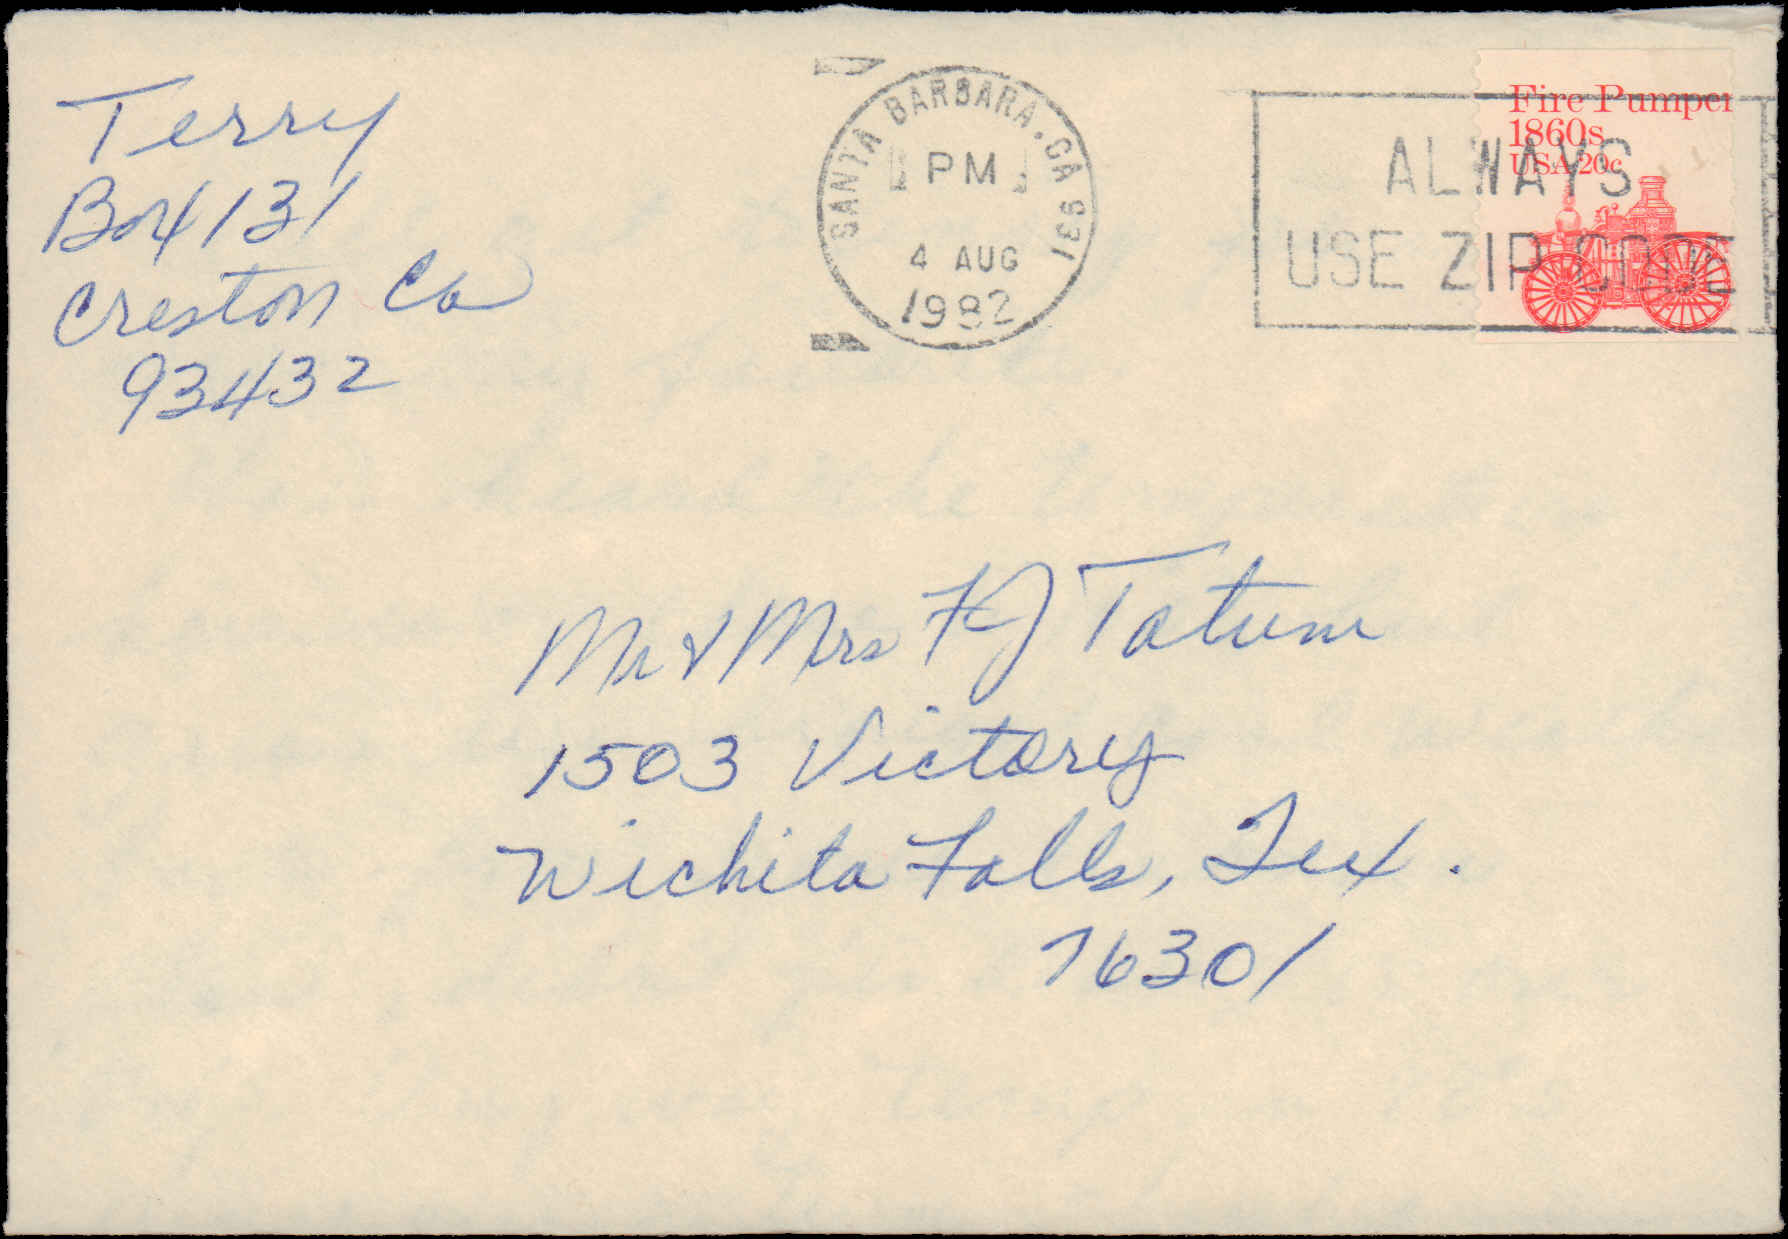 Terry
Box 131
Creston Ca
93432
SANTA BARBARA, CA 931
PM
4 AUG
1982
ALWAYS
USE ZIP CODE
Fire Pumper
1860s
USA 20c
Mr & Mrs FJ Tatum
1503 Victory
Wichita Falls, Tex.
76301